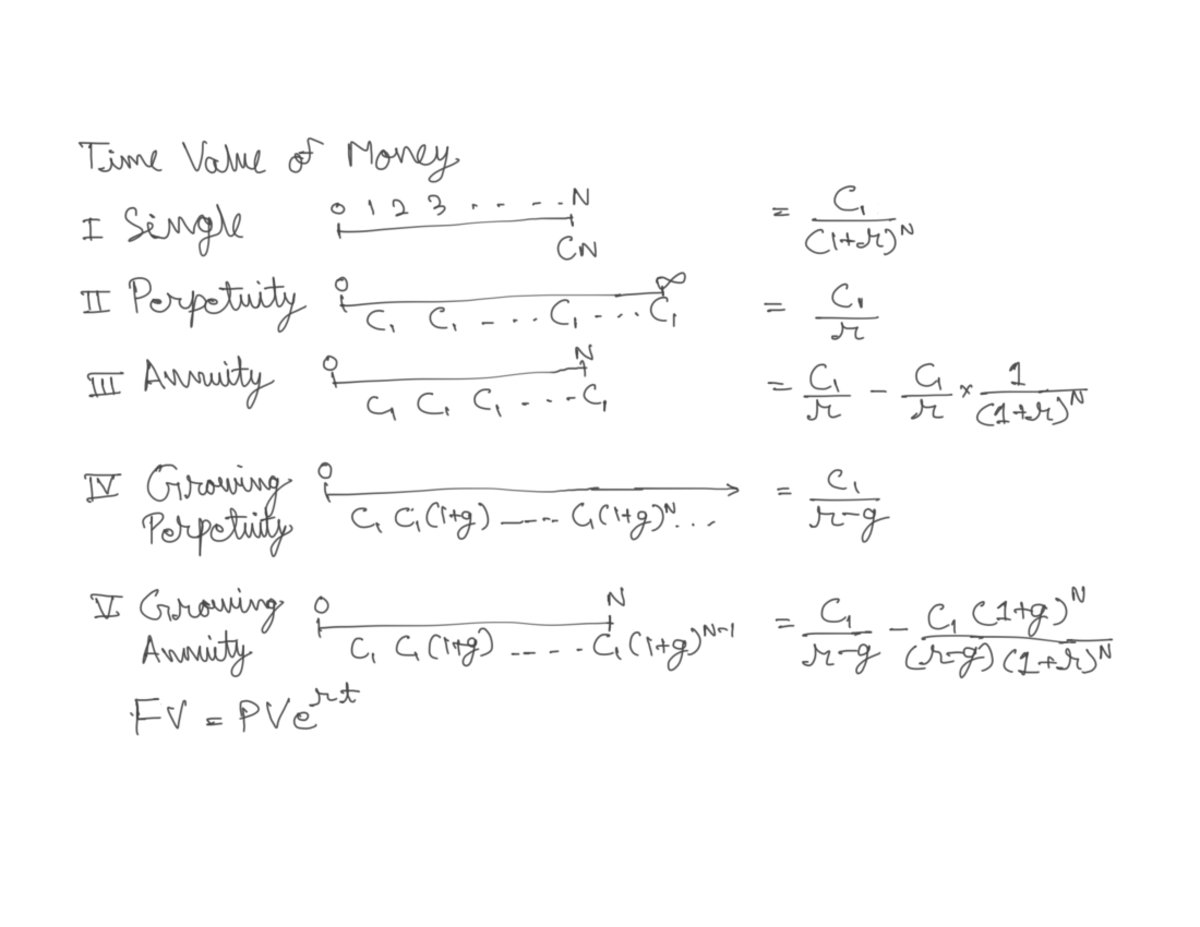 Time Value of Money
I Single 0 1 2 3 . . - - . . N CN = C₁/(1+r)^N
II Perpetuity 0 ∞ C₁ C₁ - . . . C₁ - . . . C₁ = C₁/r
III Annuity 0 N C₁ C₁ C₁ - . . . - C₁ = C₁/r - C₁/r × 1/(1+r)^N
IV Growing Perpetuity 0 C₁ C₁(1+g) ---- C₁(1+g)^N... = C₁/(r-g)
V Growing Annuity 0 N C₁ C₁(1+g) ----- C₁(1+g)^(N-1) = C₁/(r-g) - C₁(1+g)^N/((r-g)(1+r)^N)
FV = PVe^rt